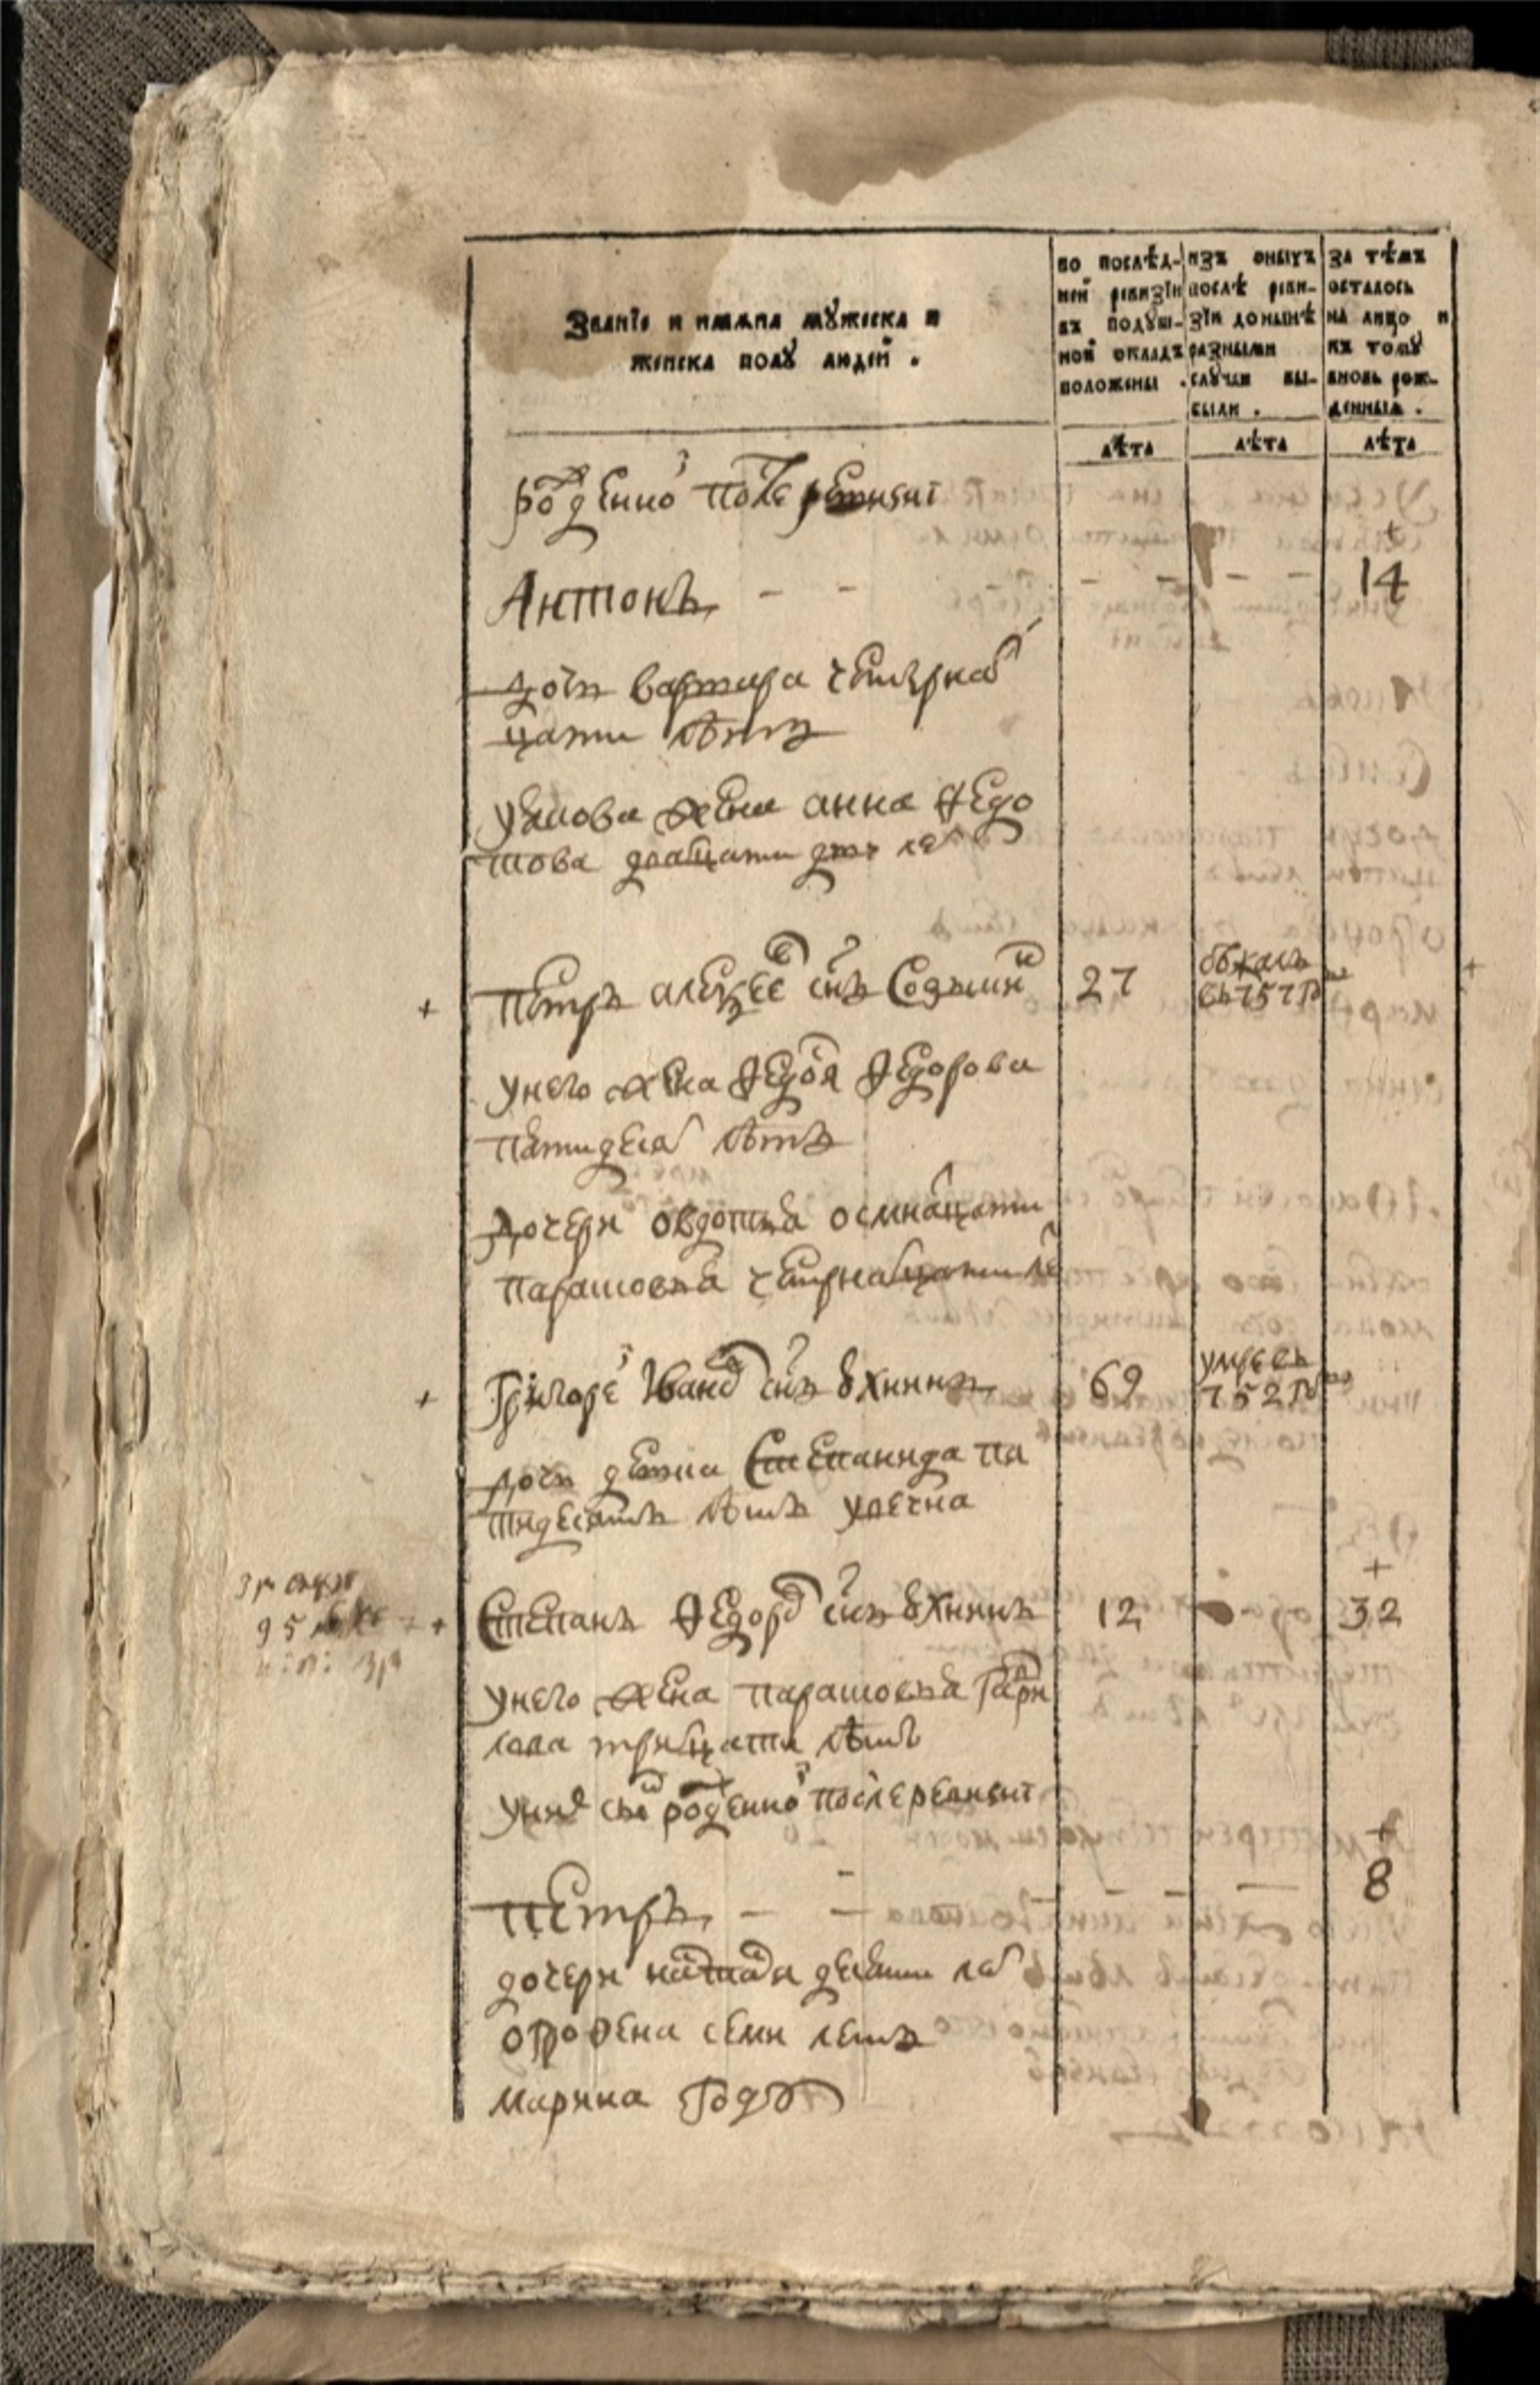 Званїе и имяна мꙋжеска и
женска полꙋ людей .
по послѣд-
ней ревизїи
въ подꙋш-
ной окладъ
положены .
изъ оныхъ
послѣ реви-
зїи до нынѣ
разными
слꙋчаи вы-
были .
за тѣмъ
осталось
на лицо и
къ томꙋ
вновь рож-
денныя .
лѣта лѣта лѣта
рожденной после ревизиї
Антонъ - - - - - - 14
дочь варвара четырнат
цати лѣтъ
жена анна Федо
това дватцати лет
Петръ алеѯеевъ снъ 27 бѣжалъ
въ 757 г
унего жена Федося Федорова
пятидесят лѣтъ
дочери овдотья осмнатцати
парасковья четырнатцати ле
Григорей Ивановъ снъ ꙋхининъ 69 умре въ
752 г
дочь девка Степанида пя
тидесятъ лѣтъ увечна
Степанъ Федоровъ снъ ꙋхининъ 12 - 32
унего жена парасковья Гаври
лова тритцати лѣтъ
уних снъ рожденной после ревизиї
Петръ - - - - - 8
дочери наталья девяти лет
офросена семи летъ
марина году